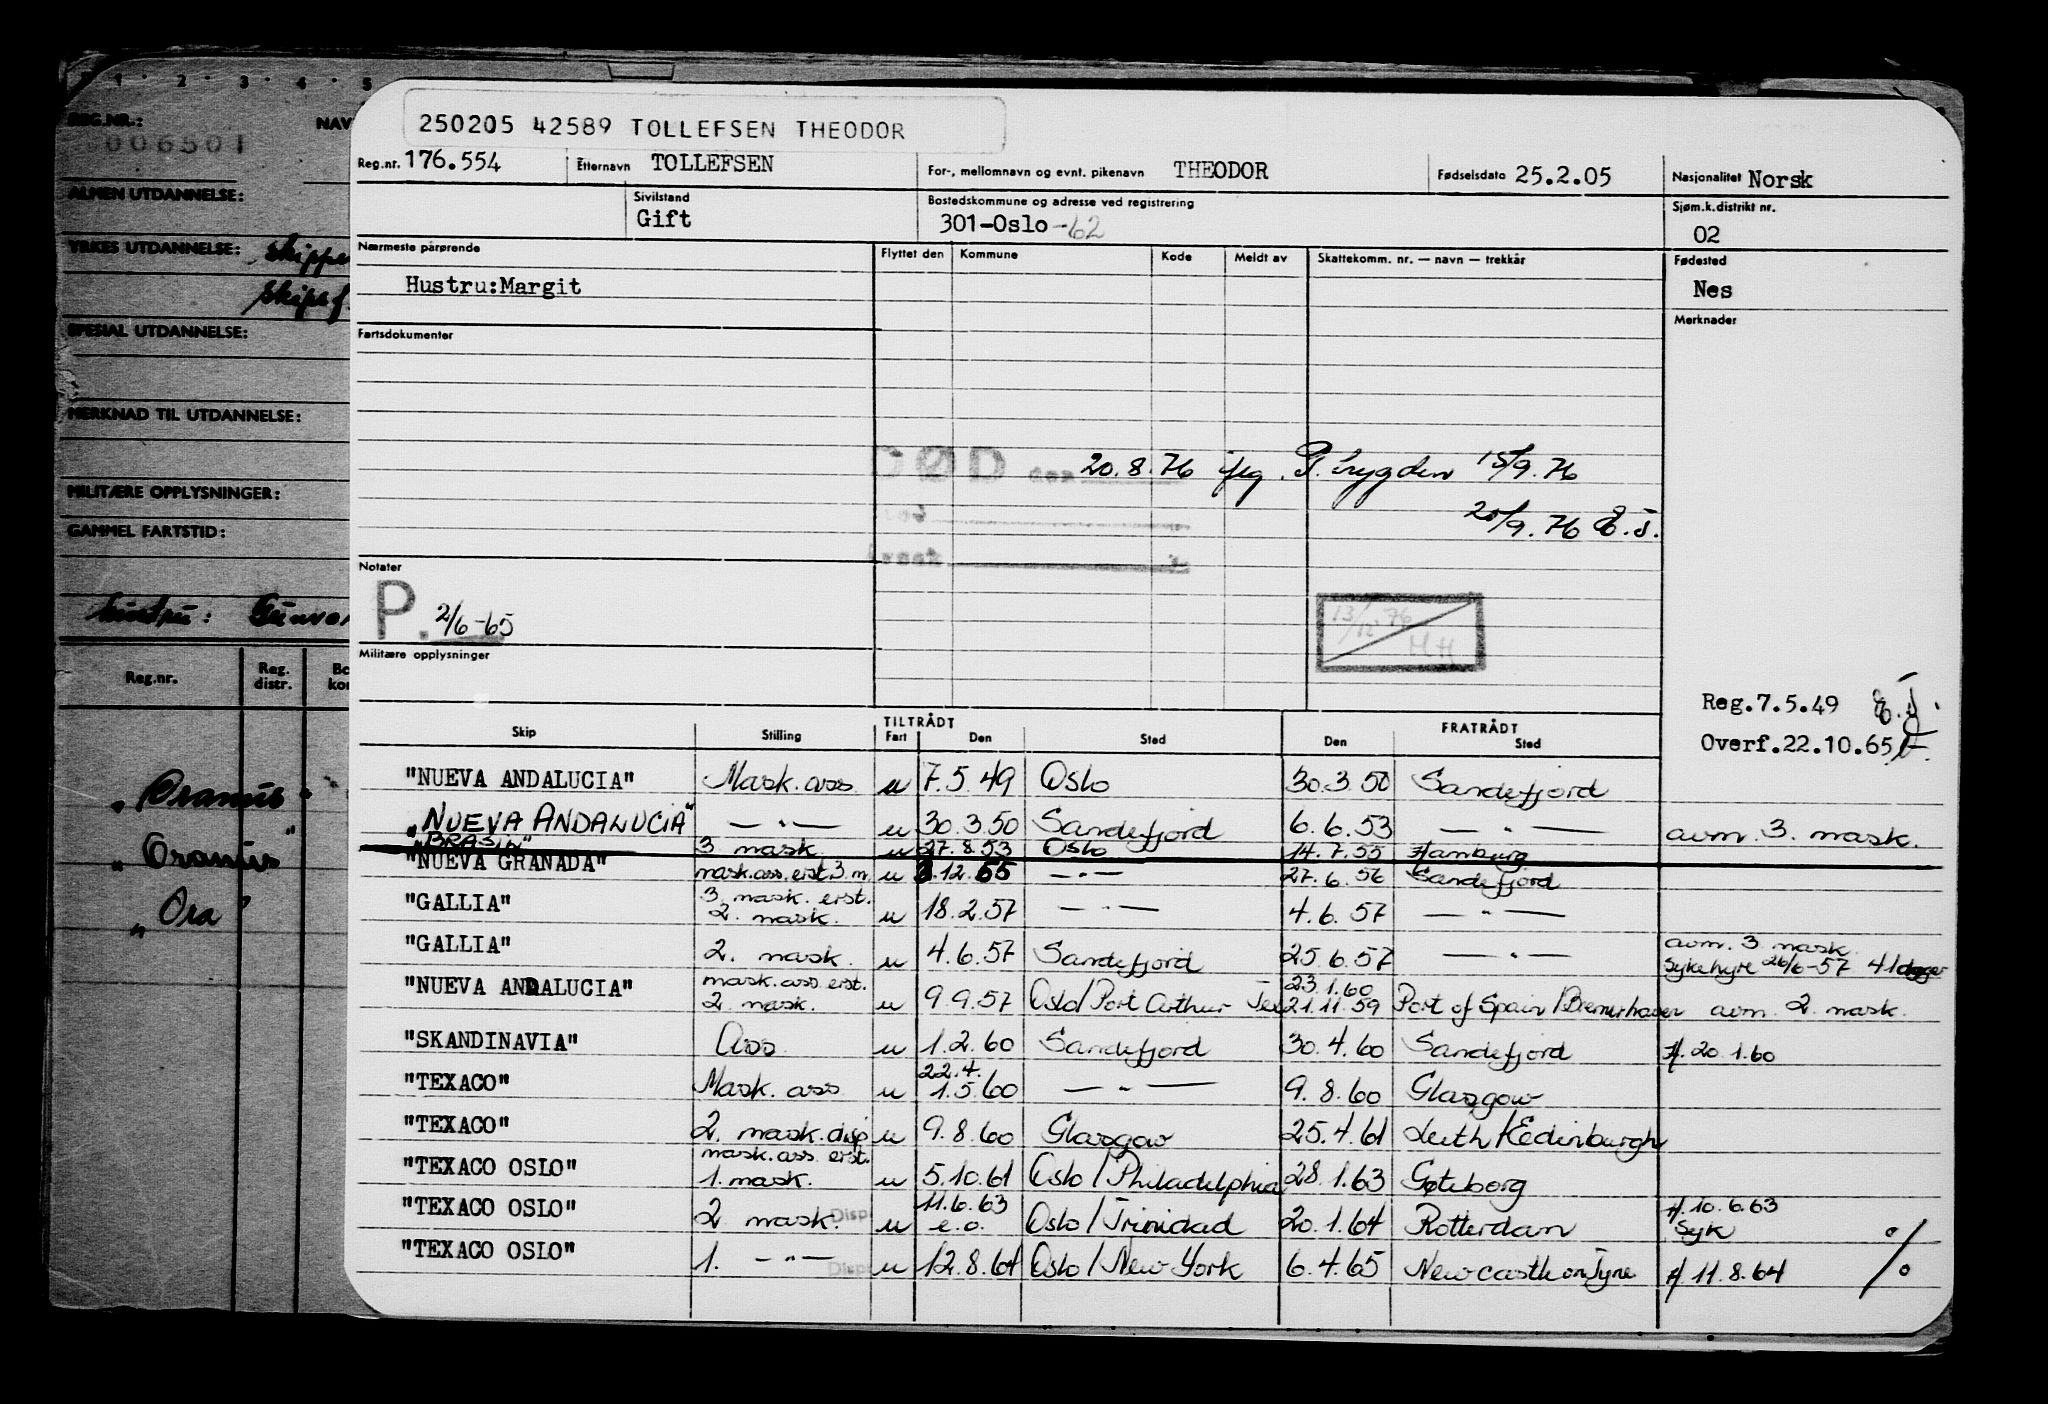 1 · 2 · 3 · 4 · 5
REG.NR.: NAV
006501
ALMEN UTDANNELSE:
YRKES UTDANNELSE: Skippe
Skipsf
SPESIAL UTDANNELSE:
MERKNAD TIL UTDANNELSE:
MILITÆRE OPPLYSNINGER:
GAMMEL FARTSTID:
hustru: Gunvor
Reg.nr. Reg. distr. Bo kor
"Oranius"
"Oranius"
"Ora"
250205 42589 TOLLEFSEN THEODOR
Reg.nr. 176.554 Etternavn TOLLEFSEN For-, mellomnavn og evnt. pikenavn THEODOR Fødselsdato 25.2.05 Nasjonalitet Norsk
Sivilstand Bostedskommune og adresse ved registrering Sjøm.k.distrikt nr.
Gift 301-Oslo -62 02
Nærmeste pårørende Flyttet den Kommune Kode Meldt av Skattekomm. nr. — navn — trekkår Fødested
Hustru:Margit Nes
Fartsdokumenter Merknader
DØD den 20.8.76 flg. P.trygden 15/9.76
20/9.76 E.J.
Årsak
Notater
P. 2/6-65
13/12 76 HH
Militære opplysninger
Reg.7.5.49 E.J.
Overf.22.10.65
TILTRÅDT FRATRÅDT
Skip Stilling Fart Den Sted Den Sted
"NUEVA ANDALUCIA" Mask. ass u 7.5.49 Oslo 30.3.50 Sandefjord
"NUEVA ANDALUCIA" — " — u 30.3.50 Sandefjord 6.6.53 — " — avm. 3. mask.
"BRASIL" 3 mask. u 27.8.53 Oslo 14.7.55 Hamburg
"NUEVA GRANADA" mask.ass. erst. 3. m. u 3.12.55 — " — 27.6.56 Sandefjord
"GALLIA" 3 mask. erst. 2. mask. u 18.2.57 — " — 4.6.57 — " —
"GALLIA" 2. mask. u 4.6.57 Sandefjord 25.6.57 — " — avm. 3 mask. Sykehyre 26/6-57 41 dager
"NUEVA ANDALUCIA" mask.ass. erst. 2. mask. u 9.9.57 Oslo/Port Arthur Tex 23.1.60 21.11.59 Port of Spain/Bremerhaven avm. 2. mask.
"SKANDINAVIA" Ass u 1.2.60 Sandefjord 30.4.60 Sandefjord H. 20.1.60
"TEXACO" Mask. ass u 22.4. 1.5.60 — " — 9.8.60 Glasgow
"TEXACO" 2. mask. disp u 9.8.60 Glasgow 25.4.61 Leith/Edinburgh
"TEXACO OSLO" mask.ass. erst. 1. mask. u 5.10.61 Oslo/Philadelphia 28.1.63 Gøteborg
"TEXACO OSLO" 2 mask. Disp u 11.6.63 e.o. Oslo/Trinidad 20.1.64 Rotterdam H. 10.6.63 Syk
"TEXACO OSLO" 1. — " — Disp u 12.8.64 Oslo/New York 6.4.65 Newcastle on Tyne H 11.8.64 %